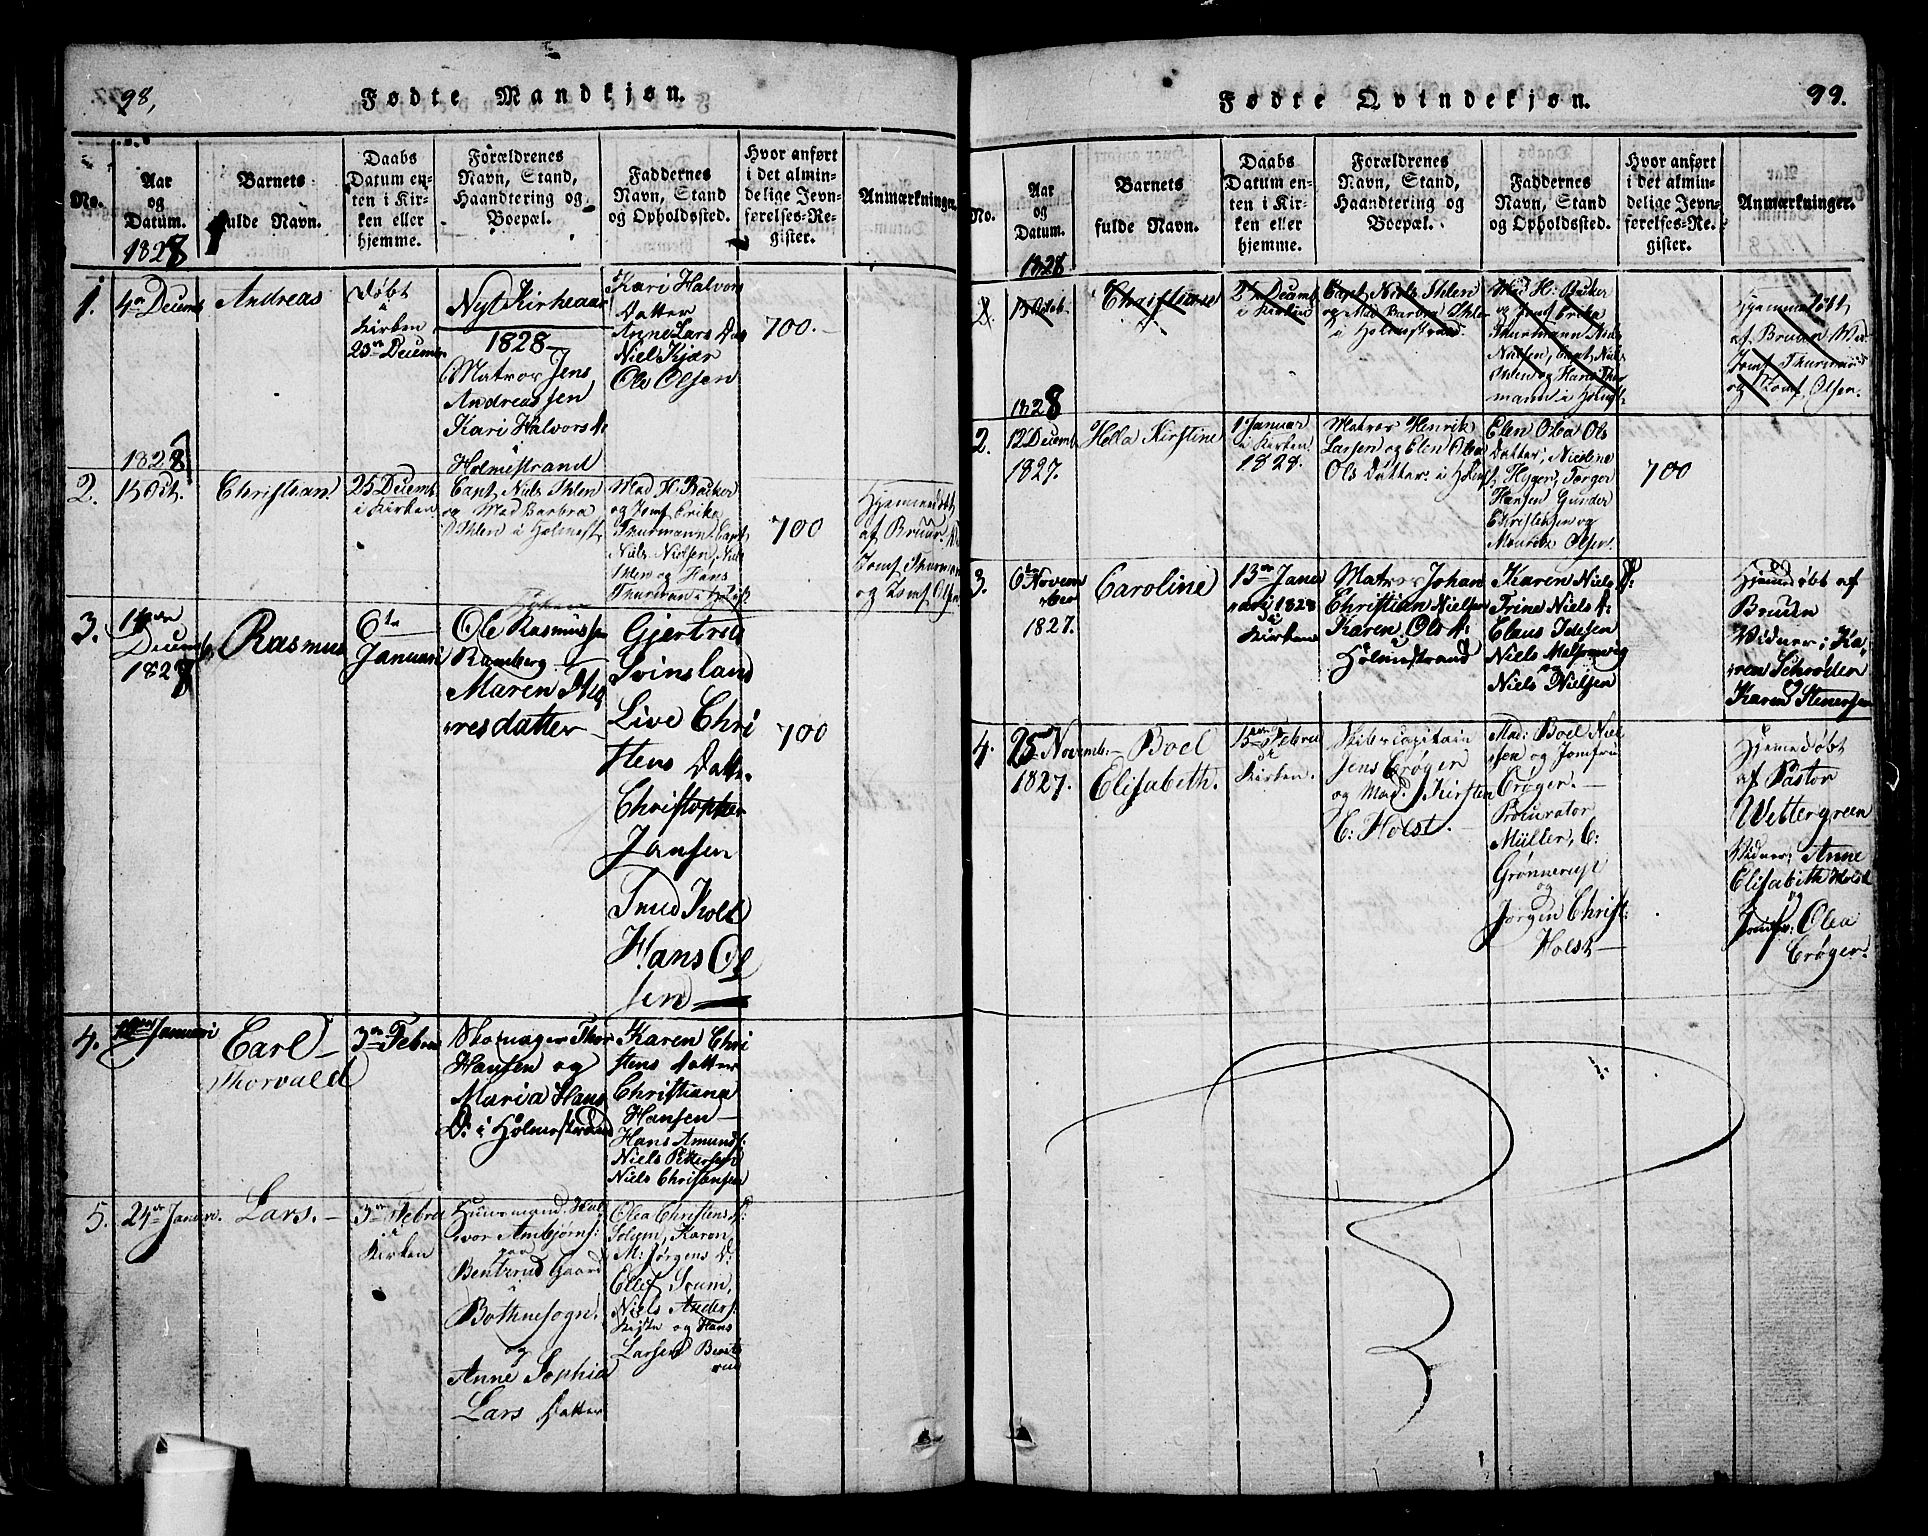 98,
Fødte Mandkjøn.
No.
Aar
og
Datum.
1828
Barnets
fulde Navn.
Daabs
Datum en-
ten i Kir-
ken eller
hjemme.
Forældrenes
Navn, Stand,
Haandtering og
Boepæl.
Faddernes
Navn, Stand
og Opholdssted.
Hvor anført
i det almin-
delige Jevn-
førelses-Re-
gister.
Anmærkninger.
1.
4de Decemb
Andreas
Døbt
i
Kirken
23de Decemb
Nyt Kirkeaar
1828
Matros Jens
Andreassen
Kari Halvors D.
Holmestrand
Kari Halvors
Datter
Anne Lars Da
Niels Kjær
Ole Olsen
700.
1828
2.
15 Oct.
Christian
25 Decemb
i Kirken
Capt. Niels Ihlen
og Mad Barbra
Ihlen i Holmest.
Mad H. Backer
og Jomf Erika
Thurmann, Capt.
Niels Nielsen, Niels
Ihlen og Hans
Thurman i Holmst.
700
Hjemmedøbt
af Bruun
Jomf Thurman
og Jomf Olsen
3.
Decemb
1828
Rasmus
6te
Januari
Ole Rasmussen
Ramberg
Maren
resdatter
Gjertrud
Svinsland
Live Chri
stens Datte.
Christopher
Jansen
Knud Holt
Hans Ol
sen
700
4.
Januari
Carl
Thorvald
3de Febru
Skomager Thor
Hansen og
Maria Hans
D: i Holmestrand
Karen Chri
stens datter
Christiana
Hansen
Hans Amunds:
Niels Pettersen
Niels Christansen
5.
24de Januar.
Lars.
3de Febru
i
Kirken
Huusmand Hal
vor Ambjørns:
paa
Bentsrud Gaard
i
Bothnesogn
og
Anne Sophia
Lars Datter
Olea Christens D:
Solum, Karen
M: Jørgens D:
Ellef Soum,
Niels Anders:
og Hans
Larsen Bents
rud
99.
Fødte Qvindekjøn.
No.
Aar
og
Datum.
1828
Barnets
fulde Navn.
Daabs
Datum en-
ten i Kir-
ken eller
hjemme.
Forældrenes
Navn, Stand,
Haandtering og
Boepæl.
Faddernes
Navn, Stand
og Opholdssted.
Hvor anført
i det almin-
delige Jevn-
førelses-Re-
gister.
Anmærkninger.
15 Octob
Christiane
25 Decemb
i Kirken
Capt. Niels Ihlen
og Mad Barbra Ihlen
i Holmestrand
Mad H: Backer
og Jomf Erika
Thurmann Niels
Nielsen, Capt. Niels
Ihlen og Hans Thur
mann i Holmst.
Hjemmedøbt
af Bruun
Jomf Thurmann
og Jomf. Olsen.
1828
2.
12 Decemb.
1827.
Hella Kirstine
1 Januar
i Kirken
1828.
Matros Henrik
Larsen og Elen Olea
Ols Datter i Holmst
Elen Olea Ols
Datter, Nicoline
Hyger, Torger
Hansen Gunder
Christensen og
Mouritz Olsen.
700
3.
6te Novem
ber
1827.
Caroline
13de Janu
ari 1828
i
Kirken
Matros Johan
Christian Nielsen
Karen Ols D:
i
Holmestrand
Karen Niels D:
Trine Niels D:
Claus Idesen
Niels Melsomvig
og
Niels Nielsen
Hjemedøbt af
Bruun
Vidner: Ka,
ren Schrøder
og
Karen Stenersen
4.
25 Novemb:
1827.
Boel
Elisabeth.
15de Febru
i
Kirken.
Skibscapitain
Jens Crøger
og Mad. Kirsten
C: Holst.
Mad: Boel Niel
sen og Jomfru
Crøger.
Procurator
Müller, C:
Grønnerup
og
Jørgen Christ:
Holst
Hjemedøbt
af Pastor
Wettergreen
Vidner: Anne
Elisabeth Holst
og
Jomfr: Olea
Crøger.